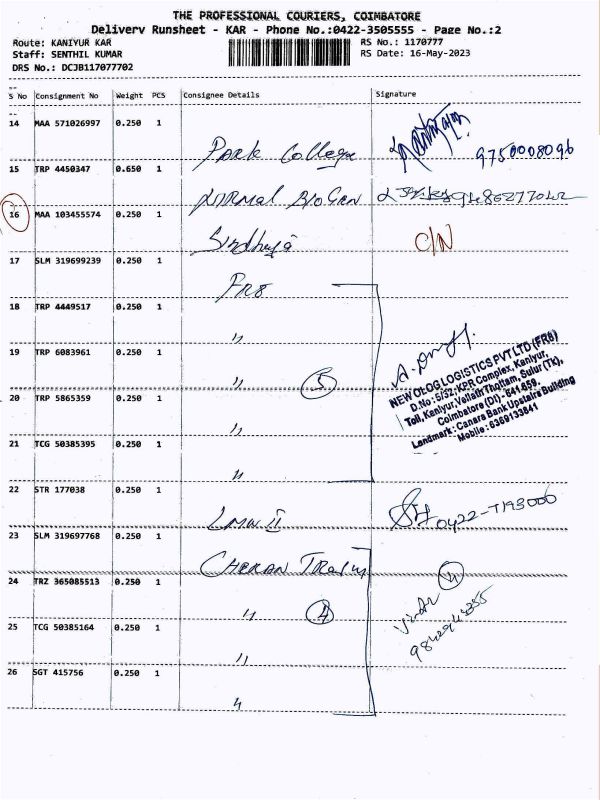 THE PROFESSIONAL COURIERS, COIMBATORE
Delivery Runsheet - KAR - Phone No.:0422-3505555 - Page No.:2
Route: KANIYUR KAR
Staff: SENTHIL KUMAR
DRS No.: DCJB117077702
RS No.: 1170777
RS Date: 16-May-2023
S No Consignment No Weight PCS Consignee Details Signature
14 MAA 571026997 0.250 1
Park College 9750008096
15 TRP 4450347 0.650 1
Normal BioGen
16 MAA 103455574 0.250 1
Sindhuja C/N
17 SLM 319699239 0.250 1
FR8
18 TRP 4449517 0.250 1
"
19 TRP 6083961 0.250 1
" 5
20 TRP 5865359 0.250 1
"
21 TCG 50385395 0.250 1
"
NEW OLOG LOGISTICS PVT LTD (FR8)
D.No: 5/32, KPR Complex, Kaniyur,
Toll, Kaniyur, Vellath Thottam, Sulur (Tk),
Coimbatore (Dt) - 641 659.
Landmark: Canara Bank Upstairs Building
Mobile: 6369133841
22 STR 177038 0.250 1
LMW II
23 SLM 319697768 0.250 1
24 TRZ 365085513 0.250 1
" 4 4
25 TCG 50385164 0.250 1
"
26 SGT 415756 0.250 1
"